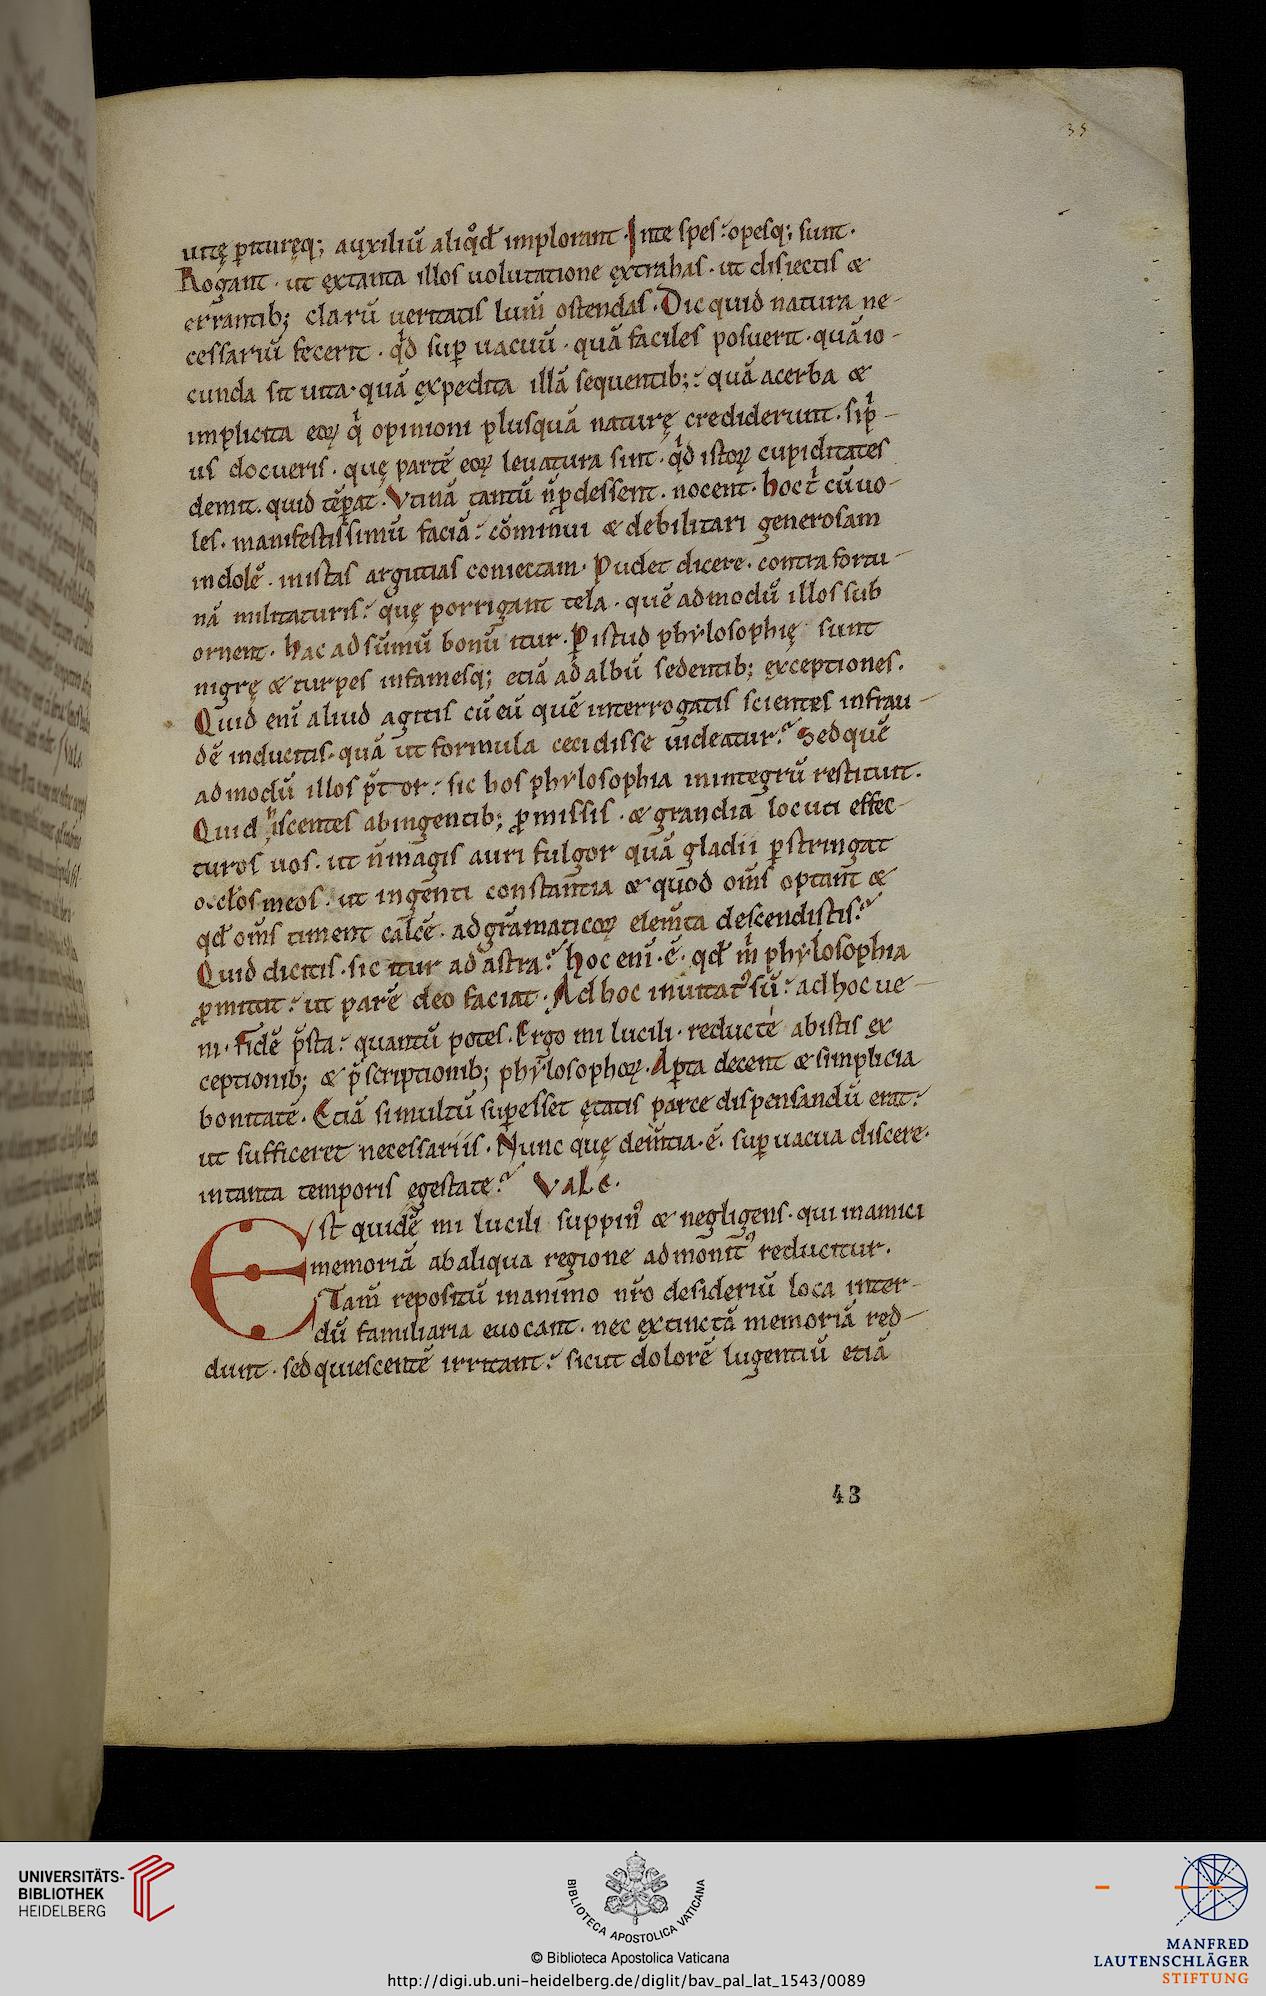 35
uitę p̱ituręq; auxiliū aliqd̄ implorant · Inte spes : opesq; sunt ·
Rogant · ut extanta illos uolutatione extrahas · ut disiectis &
errantib; clarū ueritatis lum̄ ostendas · Dic quid natura ne-
cessariū fecerit · qd sup̱ uacuū · quā faciles posuerit · quā io-
cunda sit uita · quā expedita illā sequentib; : quā acerba &
implicita eoꝝ q opinioni plusquā naturę crediderunt · si p-
us docueris · quę partē eoꝝ leuatura sint · qd istoꝝ cupiditates
demit · quid tēp̱at · Vtinā tantū n̄ ꝓdessent · nocent · hoc t̄ cū uo-
les · manifestissimū faciā : cōminui & debilitari generosam
indolē · inistas argutias coniectam · Pudet dicere · contra fortu-
nā militaturis : quę porrigant tela · quē admodū illos sub
ornent · hac ad sūmū bonū itur · P̱ istud phylosophię sunt
nigrę & turpes infamesq; etiā ad albū sedentib; exceptiones ·
Quid eni aliud agitis cū eū quē interrogatis scientes infrau-
dē inducitis · quā ut formula cecidisse uideatur : Sed quē
admodū illos p̄tor : sic hos phylosophia inintegrū restituit ·
Quid discentes abingentib; ꝓmissis · & grandia locuti effec-
turos uos · ut n̄ magis auri fulgor quā gladii p̱stringat
oc̄los meos · ut ingenti constantia & quod om̄s optant &
qd̄ om̄s timent calcē · ad gramaticoꝝ elem̄ta descendistis :
Quid dicitis · sic itur ad astra : hoc eni · ē · qd̄ m phylosophia
ꝓmittit : ut parē deo faciat · Ad hoc inuitat' sū : ad hoc ue-
ni · Fidē p̄sta : quantū potes · Ergo mi lucili · reducte abistis ex
ceptionib; & p̄scriptionib; phylosophoꝝ · Ap̱ta decent & simplicia
bonitatē · Etiā si multū sup̱esset ętatis parce dispensandū erat :
ut sufficeret necessariis · Nunc quę dem̄tia · ē · sup̱uacua discere ·
intanta temporis egestate : Vale ·
Est quidē mi lucili suppin' & negligens · qui inamici
memoriā abaliqua regione admonit' reducitur ·
Tam̄ repositū inanimo nr̄o desideriū loca inter-
dū familiaria euocant · nec extinctā memoriā red-
dunt · sed quiescentē irritant : sicut dolorē lugentiū etiā
43
UNIVERSITÄTS-
BIBLIOTHEK
HEIDELBERG
BIBLIOTECA APOSTOLICA VATICANA
© Biblioteca Apostolica Vaticana
http://digi.ub.uni-heidelberg.de/diglit/bav_pal_lat_1543/0089
MANFRED
LAUTENSCHLÄGER
STIFTUNG